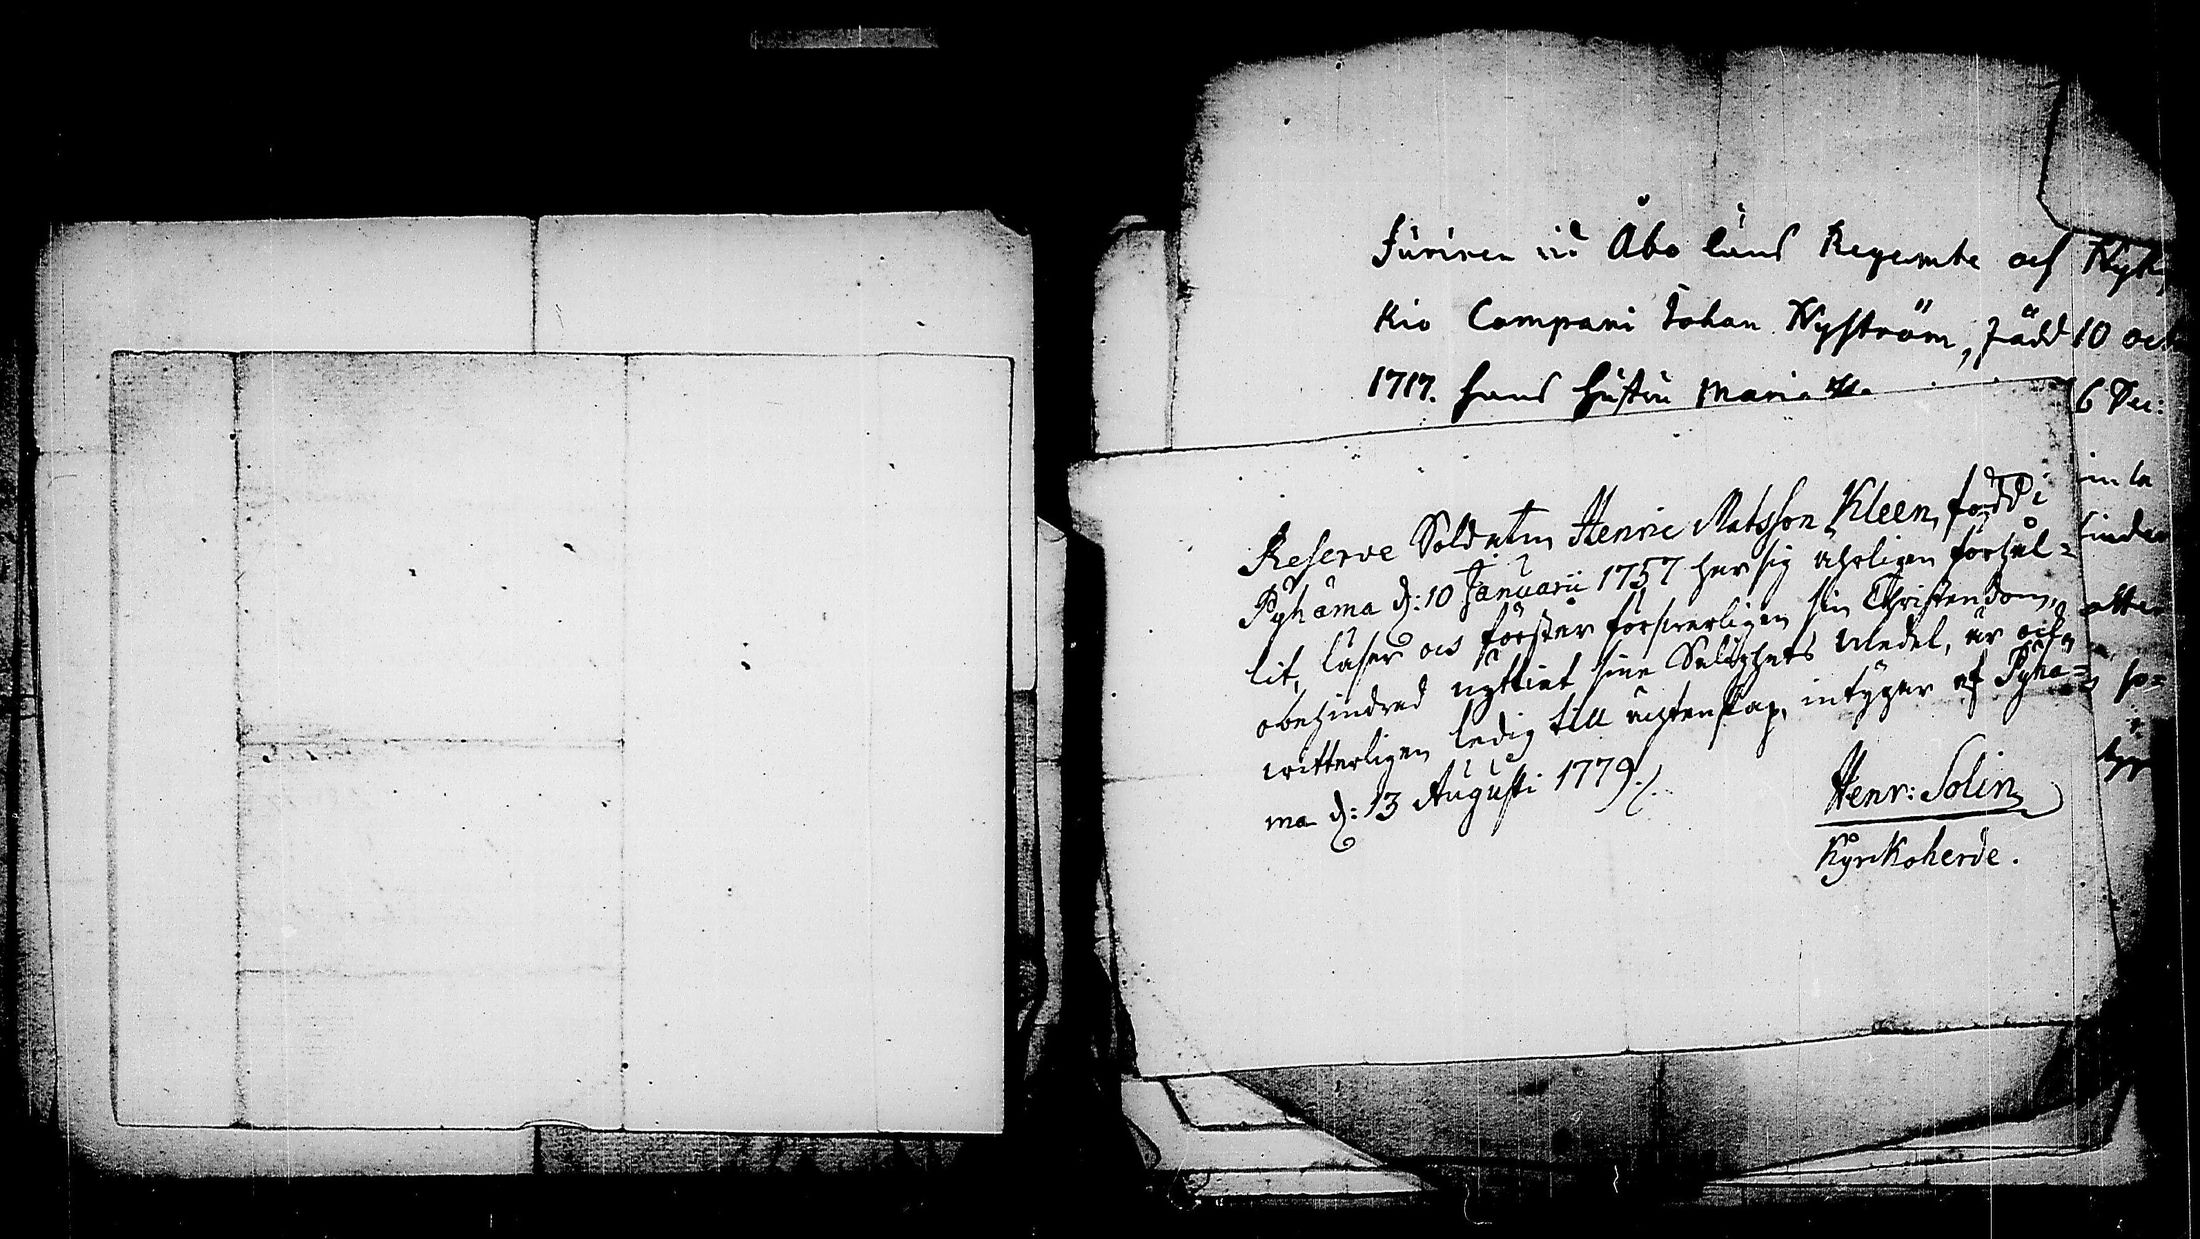 Furiren vid Åbo läns Regemente och Nyky
kio Compani Johan Nyström, född 10 octo
1717. hans hustru Maria
6 Dec:
Reserve Soldaten Henric Matsson Kleen, född i
Pyhäma d: 10 Januarii 1757 har sig ährligen förhål=
lit, läser och förstår försvarligen sin Christendom,
obehindrad nyttiat sine Salighets Medel, är och
witterligen ledig till ächtenskap, intygar af Pyhä=
ma d: 13 Augusti 1779./.
Henr: Solin
Kyrckoherde.